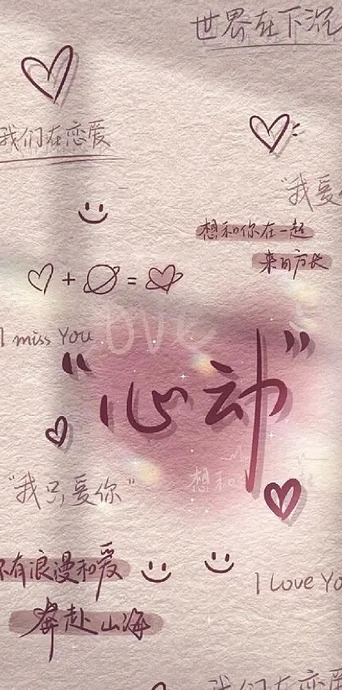 世界在下沉
我们在恋爱
"我爱
想和你在一起
来日方长
+ =
I miss You
Love
"心动"
想和
"我只爱你"
有浪漫和爱
I Love Yo
奔赴山海
我们在恋爱